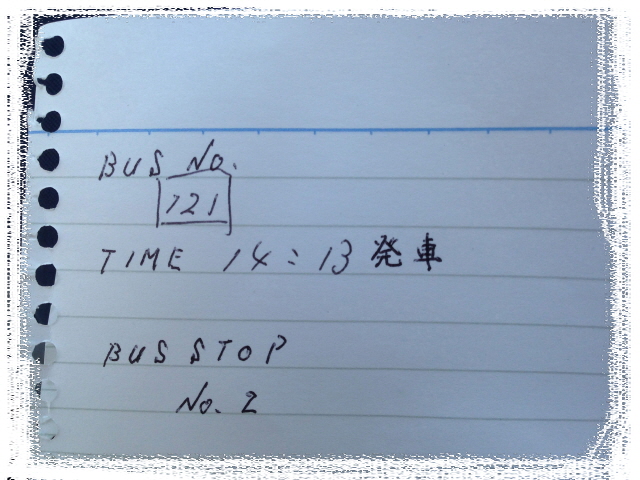 BUS No.
721
TIME 14:13 発車
BUS STOP
No. 2